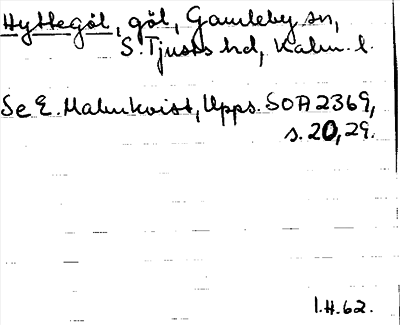 Hyttegöl, göl, Gamleby sn,
S. Tjusts hd, Kalm. l.
Se E. Malmkvist, Upps. SOA 2369,
s. 20, 29.
I.H. 62.